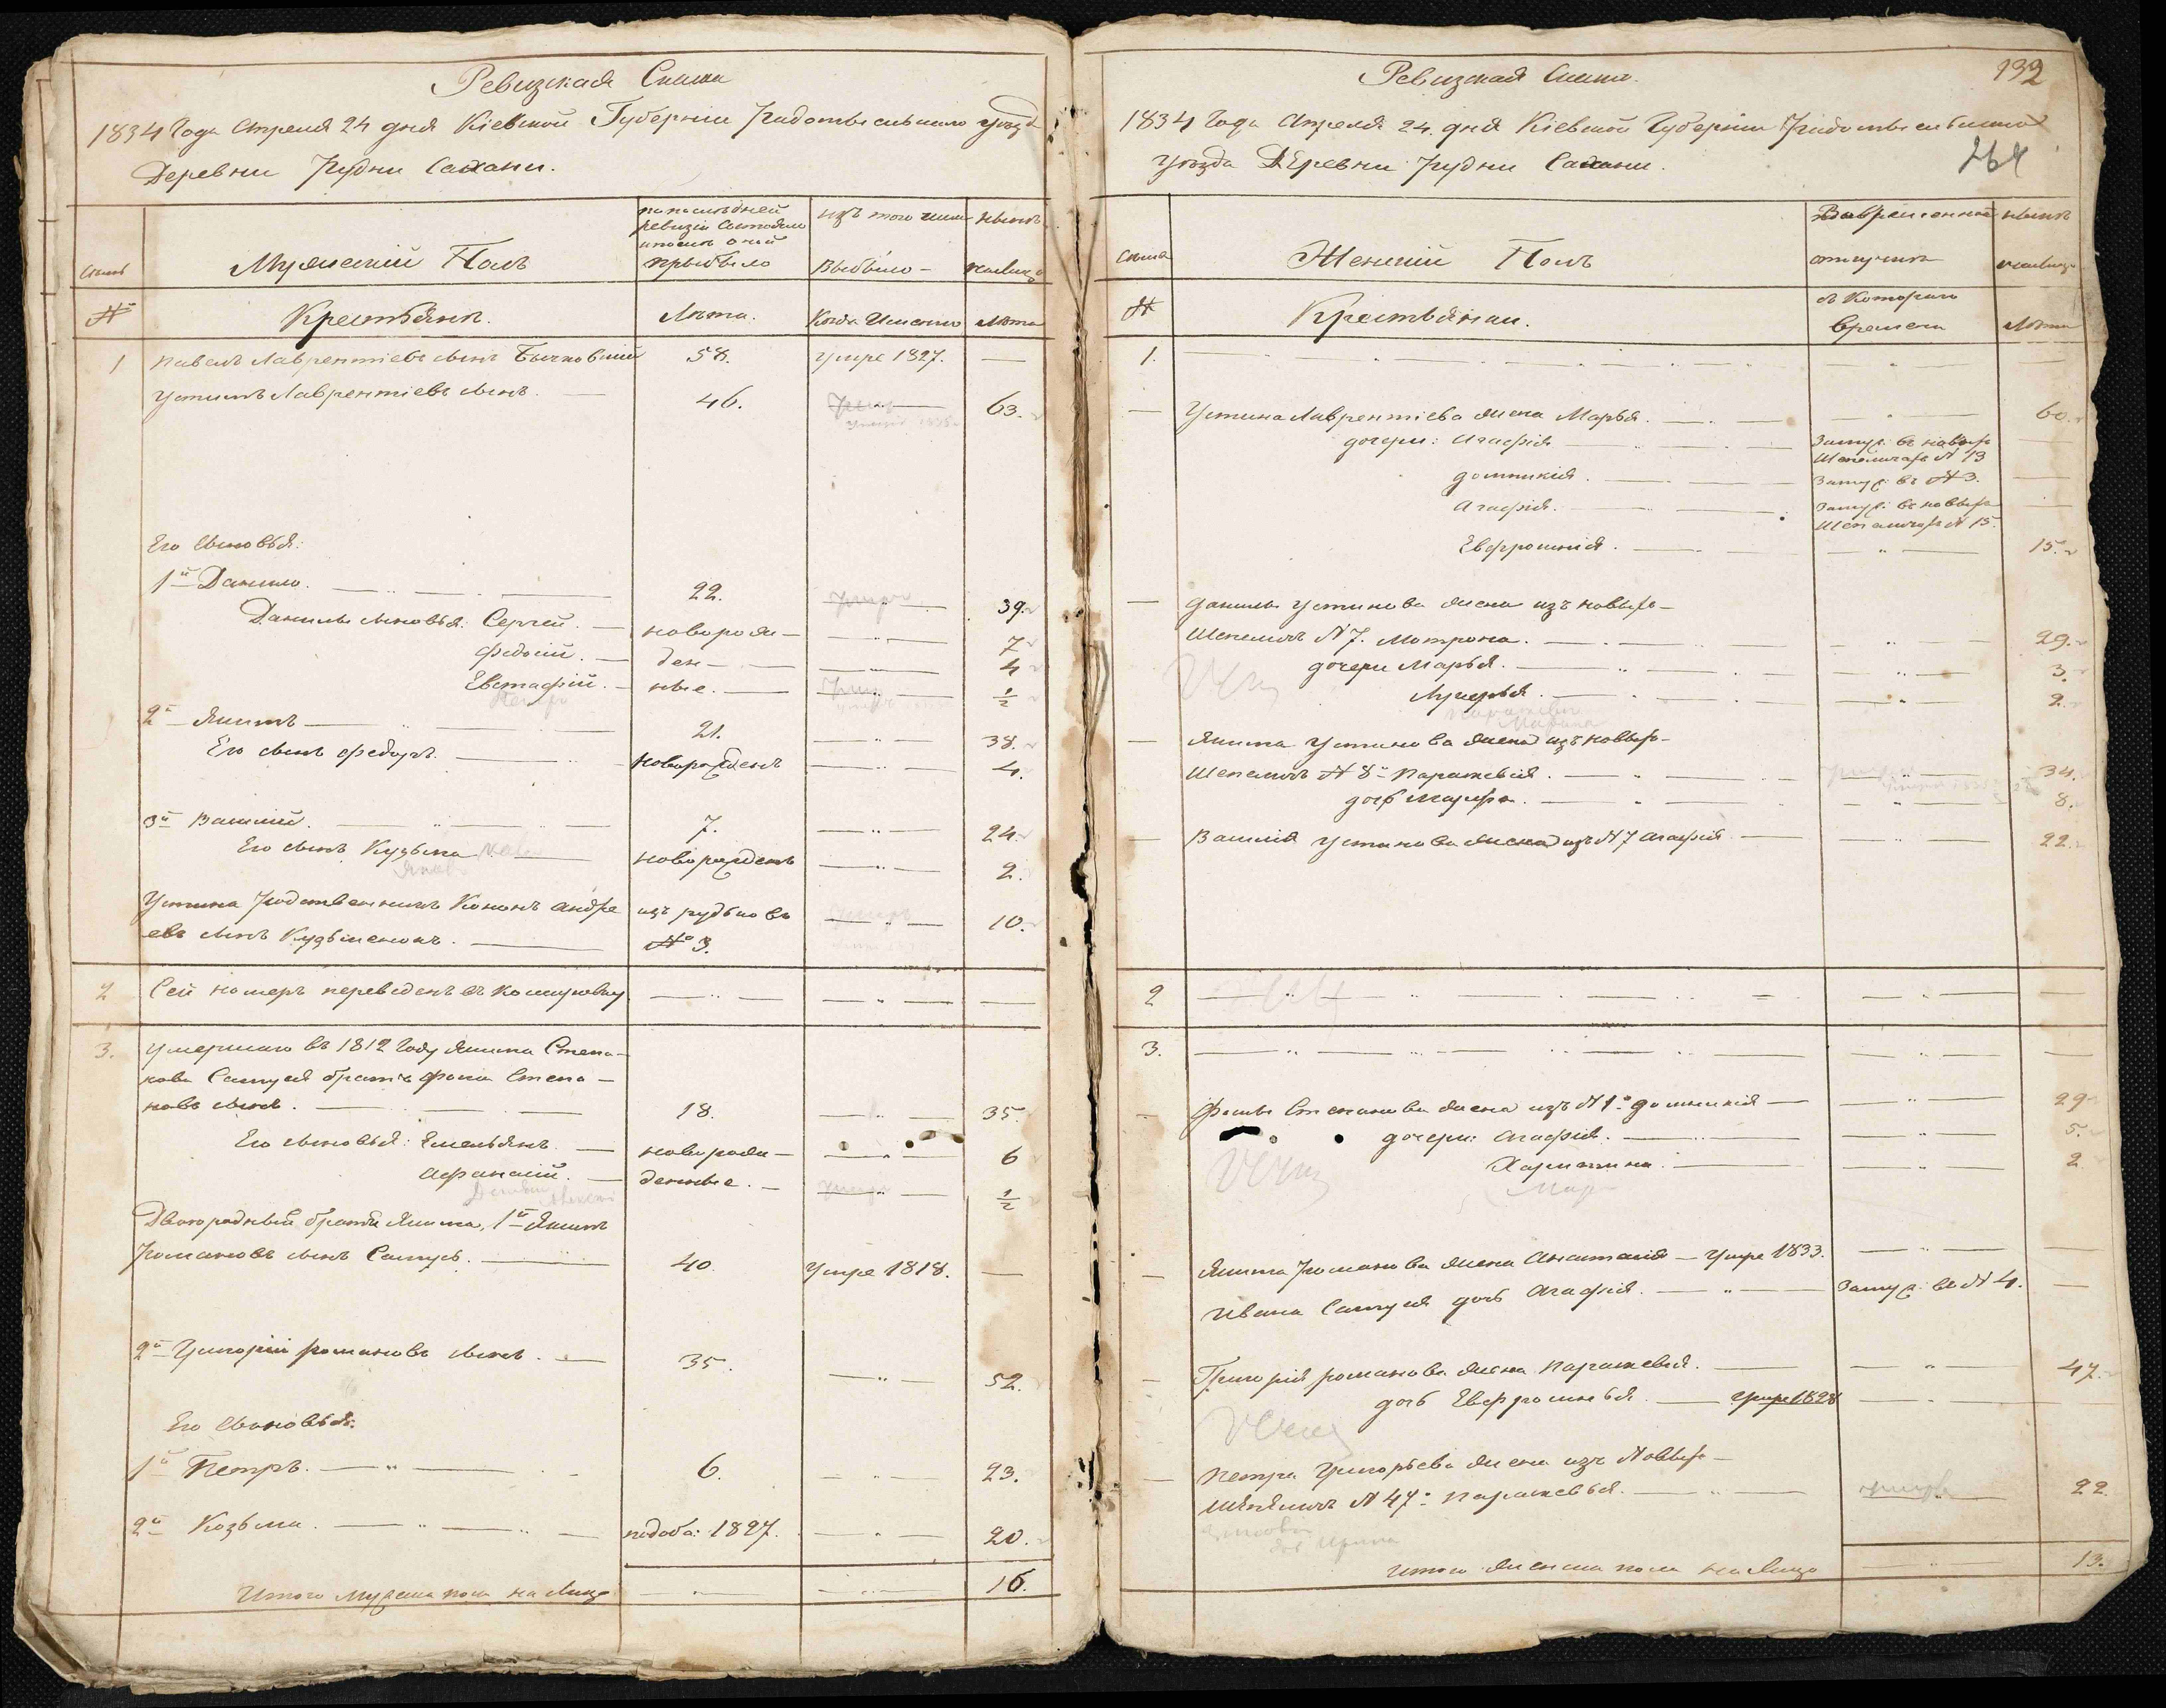 Ревизская Сказка
1834 Года Апреля 24 дня Кіевской Губерніи Радомысльскаго уезда
Деревни Рудни Сахани.
Мужескій Полъ
по последней
ревизіи Состояло
и после оной
прыбыло
изъ того числа
выбыло –
ныне
налицо
№
Крестьянъ.
Лета.
Когда Именно
Лета
1
Павелъ Лаврентіевъ сынъ Бычковскій
58.
умре 1827.
Устимъ Лаврентіевъ сынъ.
46.
63.
Его сыновья:
1й Данило.
22.
39.
Данилы сыновья: Сергей.
новорож–
7
Федосій.
ден–
4
Евстафій.
ные.
½
2й Якимъ
21.
38.
Его сынъ Федоръ.
новорожденъ
4.
3й Василий.
7.
24.
Его сынъ Кузьма
новорожденъ
2.
Устима Родственникъ Кононъ Андре
изъ рудько въ
10.
евъ сынъ Кузьменокъ.
№ 3.
2
Сей номеръ переведенъ въ
3.
умершаго въ 1812 Году Якима Степа–
нова Самуся братъ Фома Степа–
новъ сынъ.
18.
35.
Его сыновья: Емельянъ.
новорож–
6
Афанасій.
денные.
½
Двоюродныи братья Якима, 1й Якимъ
Романовъ сынъ Самусь.
40.
умре 1818.
2й Григорій романовъ сынъ.
35.
52.
Его сыновья:
1й Петръ.
6.
23.
2й Козьма.
1827.
20.
Итого мужеска пола на лицо
16.
Ревизская Сказка.
132
1834 Года Апреля 24. дня Кіевской Губерніи Радомысльскаго
264
уезда Деревни Рудни Сахани.
Женскій Полъ
Вовременной
отлучке
ныне
налицо
№
Крестьянки.
съ Котораго
времени
Лета
1.
Устима Лаврентіева жена Марья.
60.
дочери: Агафія
Замуж: въ новых
Шепеличах № 13
Домникія.
Замуж: въ № 3.
Агафія.
Замуж: въ новых
Шепеличах № 15.
Евфросинія.
15.
Данилы Устимова жена изъ новых–
Шепеличъ № 7. Мотрона.
29.
дочери Марья.
3.
Лукерья.
2.
Параскевія
Марина
Якима Устимова жена изъ новых–
Шепеличъ № 8й Параскевія.
34.
дочь Марфа.
8.
Василія Устимова жена изъ № 7 Агафія
22.
2
3.
Фомы Степанова жена изъ № 1. Домникія
29
дочери: Агафія.
5.
Харитина.
2
Якима Романова жена Анастасія – умре 1833.
Ивана Самуся дочь Агафія.
Замуж: въ № 4.
Григорія романова жена Параскевія.
47.
дочь Евфросинья.
умре 1828
Петра Григорьева жена изъ Новых–
Шепеличъ № 47. Параскевья.
22
дочь Ирина
Итого женска пола на лицо
13.